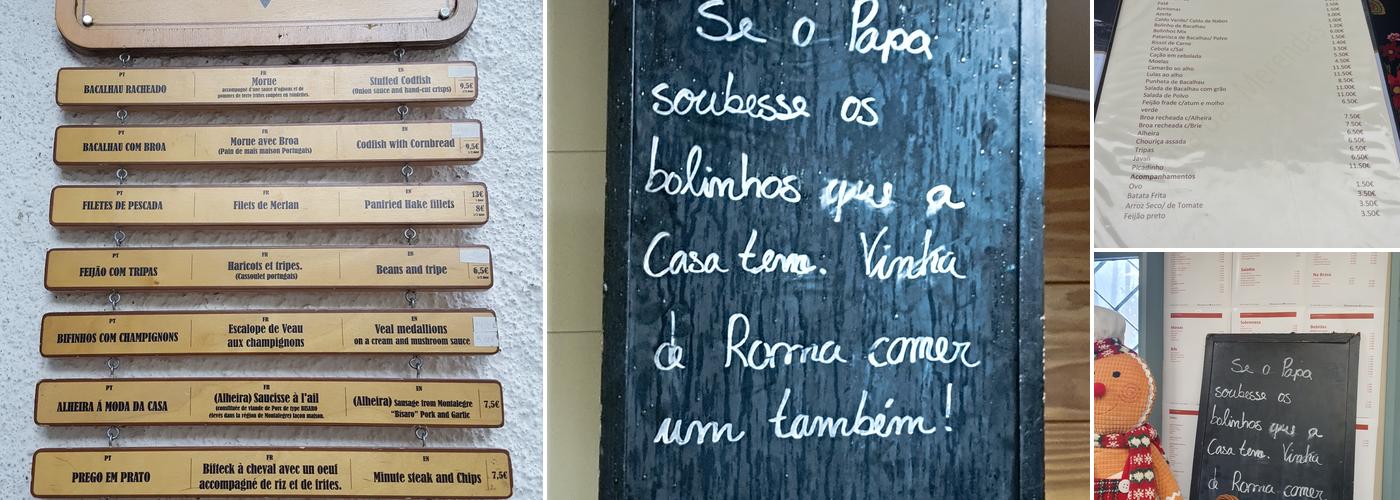 PT
FR
EN
BACALHAU RACHEADO
Morue
accompagné d'une sauce d'oignons et de
pommes de terre frites coupées en rondelles.
Stuffed Codfish
(Onion sauce and hand-cut crisps)
9,5€
PT
FR
EN
BACALHAU COM BROA
Morue avec Broa
(Pain de maïs maison Portugais)
Codfish with Cornbread
9,5€
PT
FR
EN
FILETES DE PESCADA
Filets de Merlan
Panfried Hake fillets
13€
8€
PT
FR
EN
FEIJÃO COM TRIPAS
Haricots et tripes.
(Cassoulet portugais)
Beans and tripe
6,5€
PT
FR
EN
BIFINHOS COM CHAMPIGNONS
Escalope de Veau
aux champignons
Veal medallions
on a cream and mushroom sauce
PT
FR
EN
ALHEIRA Á MODA DA CASA
(Alheira) Saucisse à l'ail
(constituée de viande de Porc de type BISARO
élevés dans la région de Montalegre) façon maison.
(Alheira) Sausage from Montalegre
"Bísaro" Pork and Garlic
7,5€
PT
FR
EN
PREGO EM PRATO
Bifteck à cheval avec un oeuf
accompagné de riz et de frites.
Minute steak and Chips
7,5€
Se o Papa
soubesse os
bolinhos que a
Casa tem. Vinha
de Roma comer
um também!
Azeitonas 1.50€
Azeite
Caldo Verde/ Caldo de Nabos
Bolinho de Bacalhau 1.20€
Bolinhos Mix 6.00€
Pataniscas de Bacalhau/ Polvo 1.50€
Rissol de Carne 1.40€
Cebola c/Sal 3.50€
Cação em cebolada 5.50€
Moelas 4.50€
Camarão ao alho 11.50€
Lulas ao alho 11.50€
Punheta de Bacalhau 8.50€
Salada de Bacalhau com grão 11.00€
Salada de Polvo 11.00€
Feijão frade c/atum e molho 6.50€
verde
Broa recheada c/Alheira 7.50€
Broa recheada c/Brie 7.50€
Alheira 6.50€
Chouriça assada 6.50€
Tripas 6.50€
Javali 6.50€
Picadinho 11.50€
Acompanhamentos
Ovo 1.50€
Batata Frita 3.50€
Arroz Seco/ de Tomate 3.50€
Feijão preto 3.50€
Saladas
Na Brasa
Sobremesa
Bebidas
Se o Papa
soubesse os
bolinhos que a
Casa tem. Vinha
de Roma comer